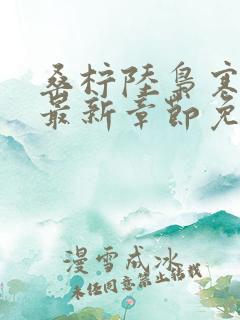 桑柠陆枭寒
最新章节免
漫雪成冰
未经同意禁止转载